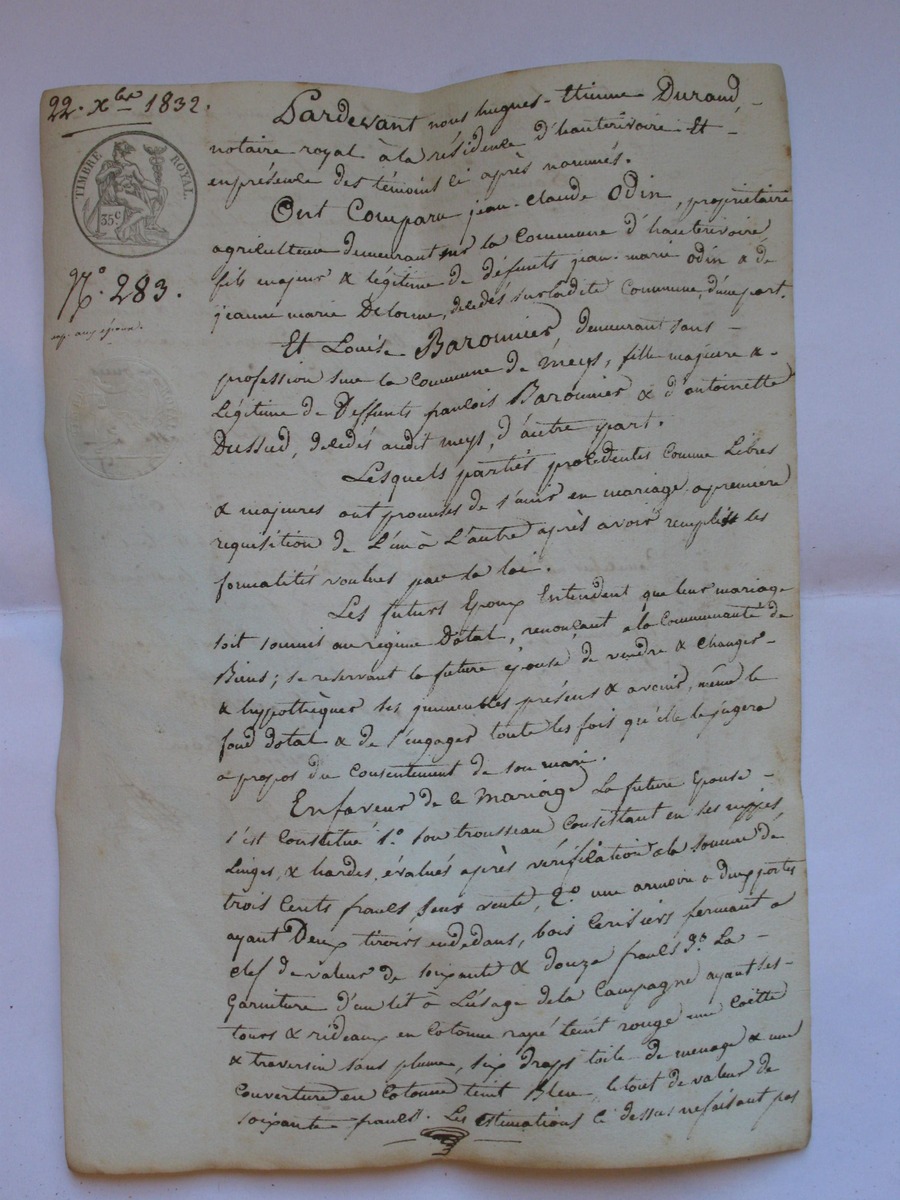 22. xbre 1832.
TIMBRE ROYAL.
35c
N.° 283.
Pardevant nous hugues-Etienne Durand
notaire royal à la résidence d'hauterivoire Et
enprésence des témoins ci après nommés.
Ont Comparu jean-Claude Odin, propriétaire
agriculteur demeurant sur la Commune d'hauterivoire,
fils majeur & légitime de défunts jean-marie Odin & de
jeanne marie Delorme, décédés surladite Commune, d'une part.
Et Louise Baronnier, demeurant sans
profession sur la Commune de meys, fille majeure &
Légitime de Deffunts françois Baronnier & d'antoinette
Dussud, décédés audit meys, d'autre part.
Lesquels parties procédentes Comme Libres
& majeures ont promises de s'unir en mariage a première
requisition de L'un à L'autre après avoir remplis les
formalités voulues par la loi.
Les futurs Epoux Entendent que leur mariage
soit soumis au régime Dotal, renonçant a la Communauté de
Biens; se reservant la future épouse de vendre & changer
& hypothèquer ses immeubles présens & avenir, même le
fond dotal & de l'engager toute les fois qu'elle le jugera
a propos du Consentement de son mari.
Enfaveur de ce Mariage La future Epouse
s'est Constitué 1.° son trousseau Consistant en ses nippes
Linges, & hardes, évalués après vérification a la somme de
trois Cents francs, sans vente, 2.° une armoire a deux portes
ayant Deux tiroirs endedans, bois Cerisiers fermant a
clef de valeur de soixante & douze francs 3.° La
Garniture d'un lit à L'usage dela Campagne ayant ses
tours & rideaux en Cotonne rapé teint rouge une Coëtte
& traversin sans plume, six draps toile de menage & une
Couverture en Cotonne teint Bleu, le tout de valeur de
soixante francs. Les estimations Ci dessus nefaisant pas